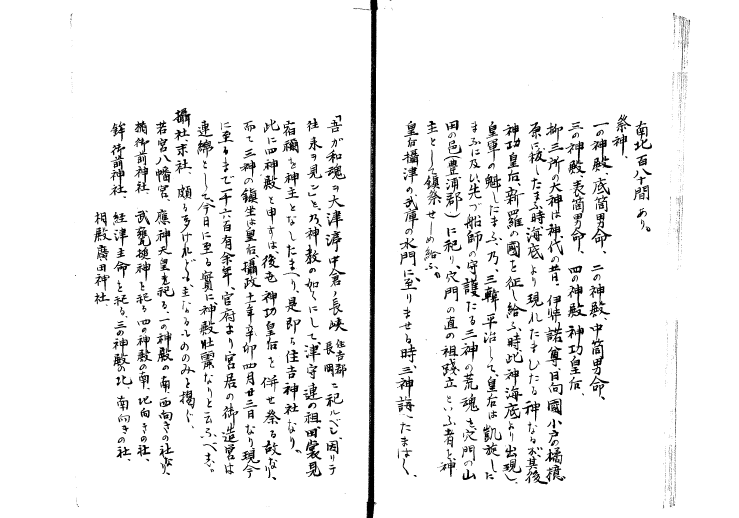 南北百八十間あり。
祭神、
一の神殿、底筒男命、二の神殿、中筒男命、
三の神殿、表筒男命、四の神殿、神功皇后、
抑三所の大神は神代の昔、伊弉諾尊日向國小戸の橘檍
原に祓したまふ時海底より現れたましたる神なるが其後
神功皇后、新羅の國を征し給ふ時此神海底より出現し
皇軍の魁したまふ、乃三韓平治して皇后は凱旋した
まふに及び先づ船師の守護たる三神の荒魂を穴門の山
田の邑(豊浦郡)に祀り、穴門の直の祖踐立といふ者を神
主として鎮祭せしめ給ふ。
皇后攝津の武庫の水門に至りませる時三神誨へたまはく、
「吾が和魂ヲ大津渟中倉の長峽住吉郡長岡ニ祀ルベシ、因リテ
往来ヲ見ン」と、乃神教の如くにして津守連の祖、田裳見
宿禰を神主となしたまへり、是即ち住吉神社なり。
此に四神殿と申すは、後世神功皇后を併せ祭る故なり、
而て三神の鎮坐は皇后攝政十一年辛卯四月廿三日なり現今
に至るまで一千六百有余年、官府より宮居の御造営は
連綿として今日に至る實に神殿壮嚴なりと云ふべし。
攝社末社、頗る多けれども、主なるもののみを掲ぐ、
若宮八幡宮、應神天皇を祀る、一の神殿の南西向きの社なり、
楯御前神社、武甕槌神を祀る四の神殿の南、北向きの社、
鉾御前神社、経津主命を祀る、三の神殿の北、南向きの社、
相殿廣田神社、